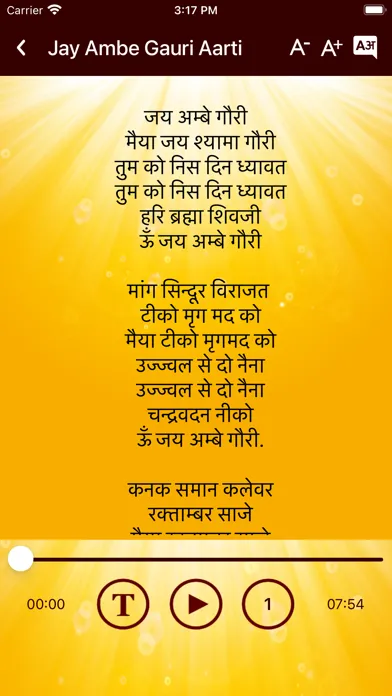 Carrier 3:17 PM
Jay Ambe Gauri Aarti A- A+ Aअ
जय अम्बे गौरी
मैया जय श्यामा गौरी
तुम को निस दिन ध्यावत
तुम को निस दिन ध्यावत
हरि ब्रह्मा शिवजी
ऊँ जय अम्बे गौरी
मांग सिन्दूर विराजत
टीको मृग मद को
मैया टीको मृगमद को
उज्ज्वल से दो नैना
उज्ज्वल से दो नैना
चन्द्रवदन नीको
ऊँ जय अम्बे गौरी.
कनक समान कलेवर
रक्ताम्बर साजे
00:00 T 1 07:54